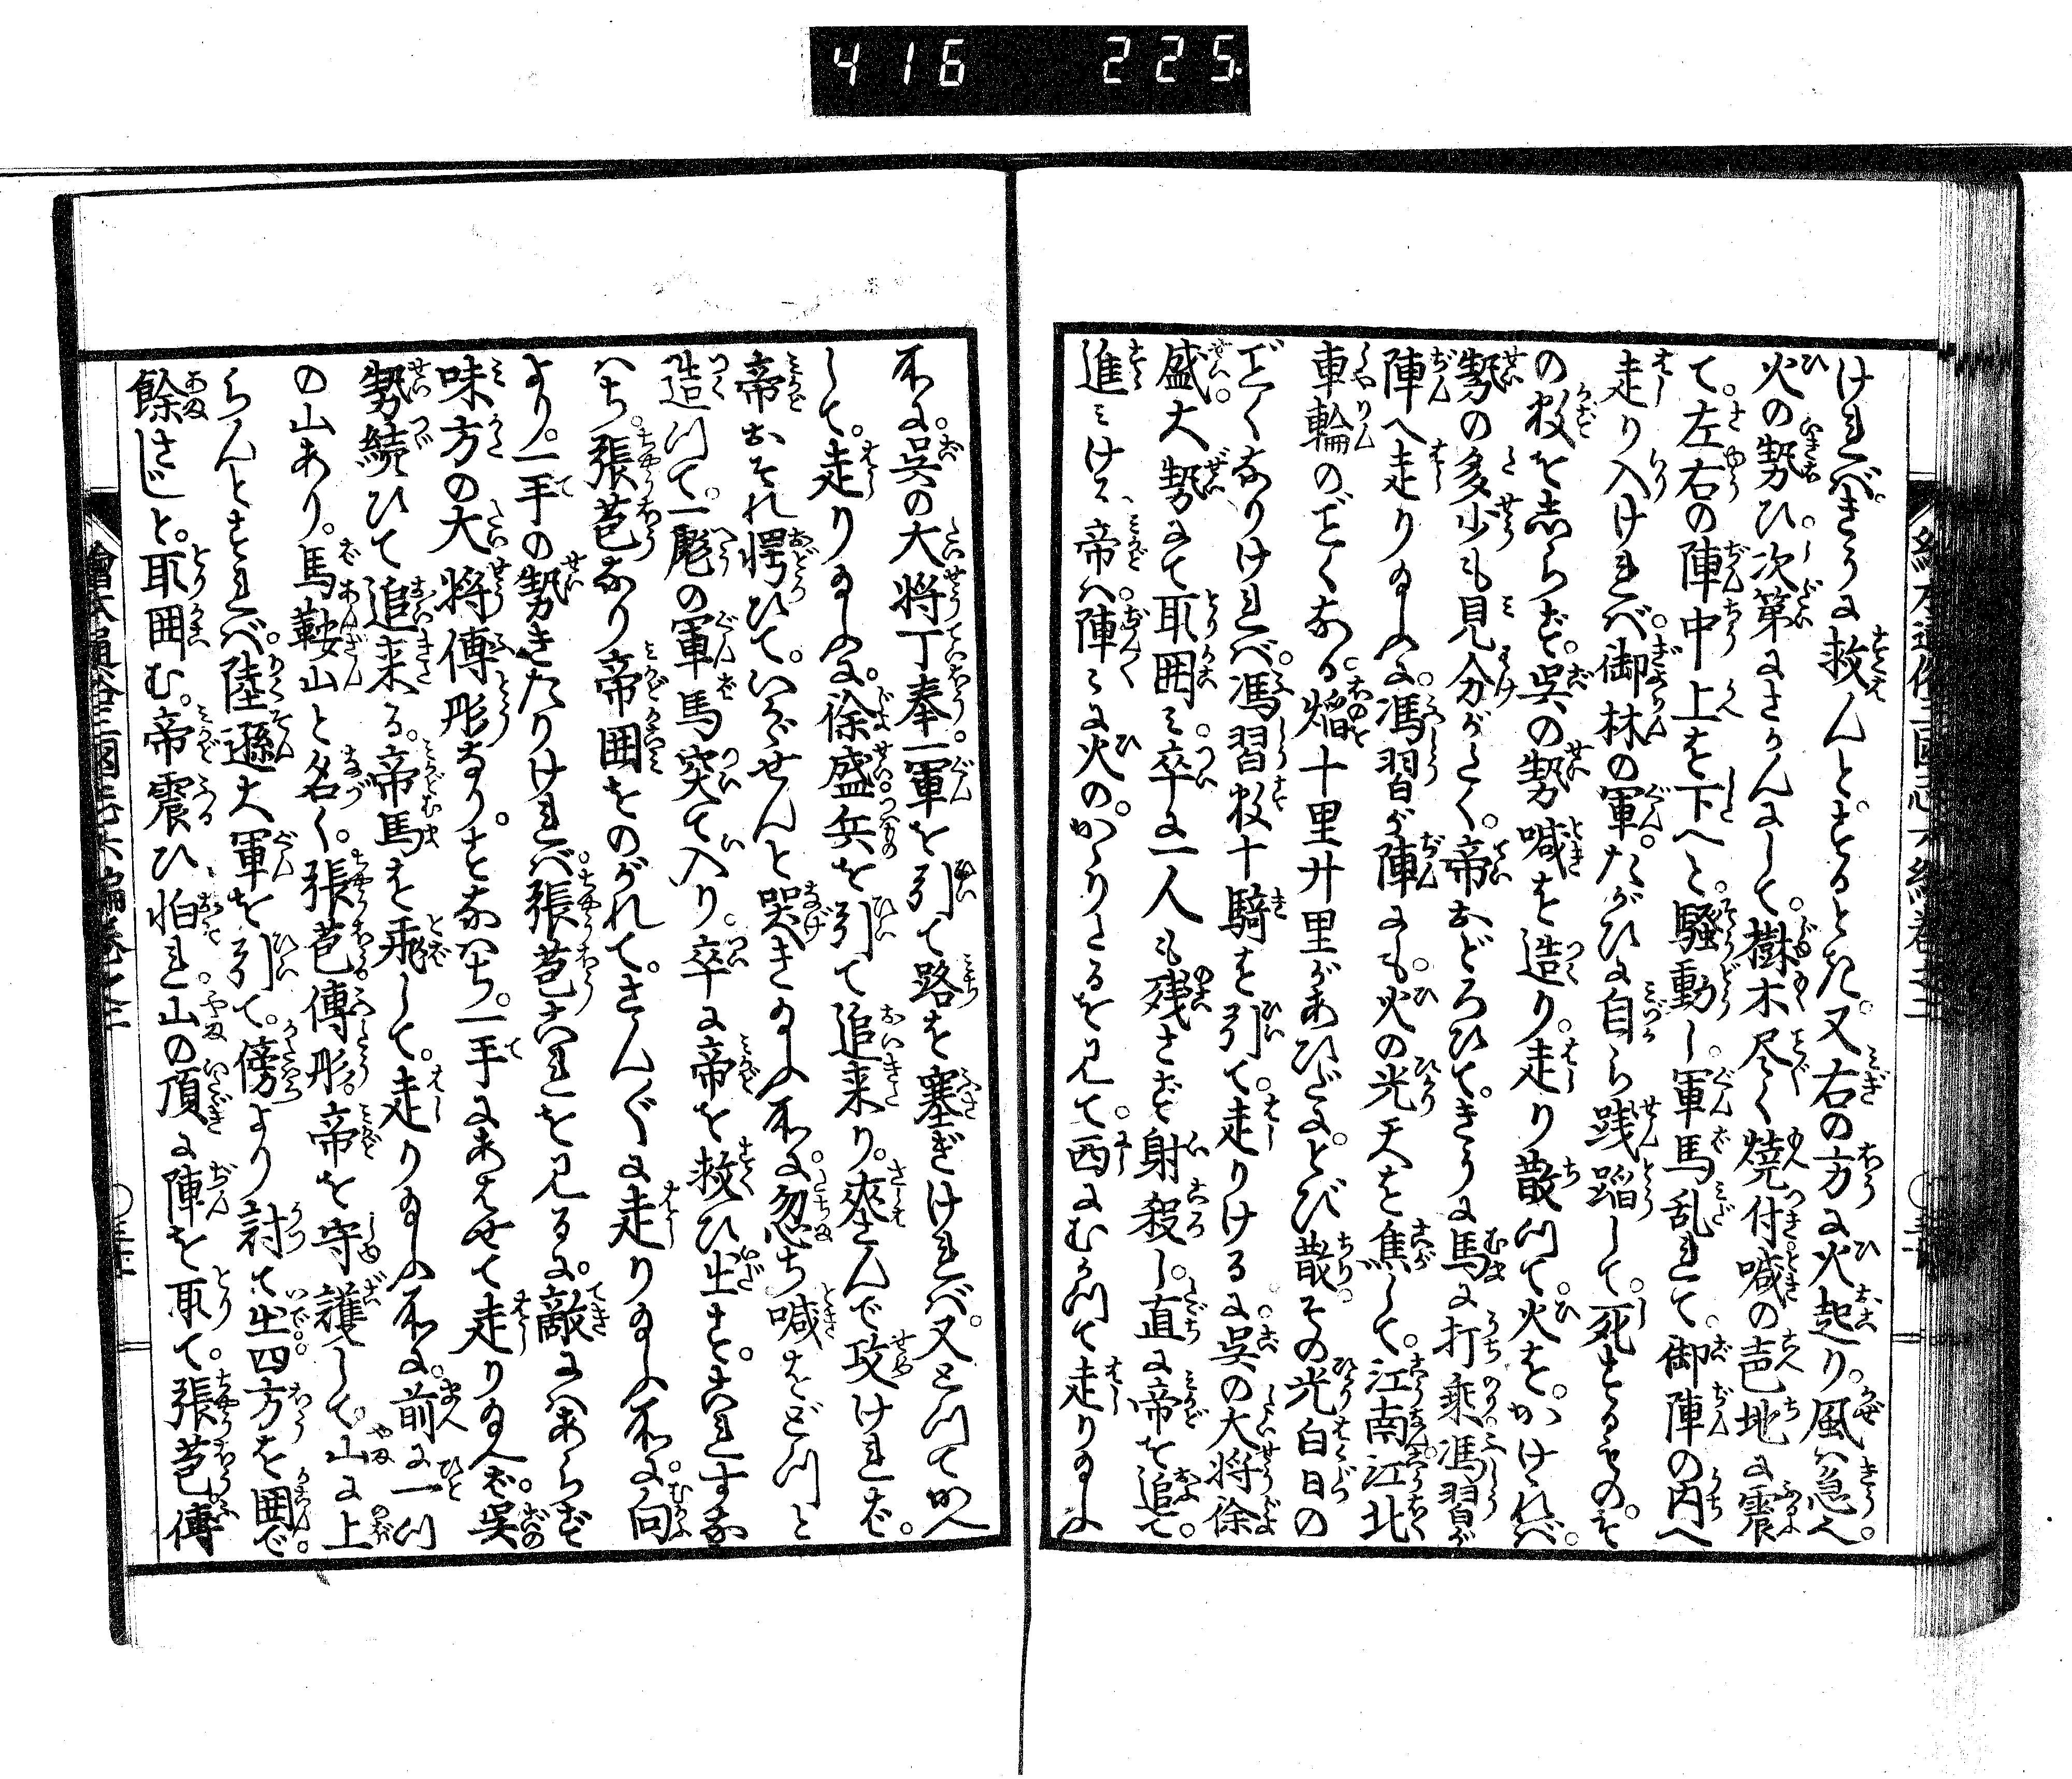 416 225
けれバ。きうに救んと。するとき。又右の方に火起り。風ハ急也。
火の勢ひ。次第にさかんにして。樹木尽く焼付喊の声地に震
て。左右の陣中上を下へと。騒動し。軍馬乱れて。御陣の内へ
走り入けれバ。御林の軍。たがひに自ら践蹈して。死するもの。そ
の数をしらず。呉の勢喊を造り。走り散つて。火を。かけゝれバ。
勢の多少も見分がたく。帝おどろひて。きうに馬に打乗馮習が
陣へ走りゆふに。馮習が陣にも。火の光天を焦して。江南江北
車輪のごとくなる。焔十里廿里があひだに。とび散。その光白日の
ごとくなりけれバ。馮習数十騎を引て。走りけるに。呉の大将徐
盛。大勢にて取囲ミ。卒に一人も残さず射殺し。直に帝を追て。
進ミけル、帝ハ。陣〻に火の。かゝりたるを見て。西にむかつて走り給ふ
不に。呉の大将丁奉。一軍を引て路を塞ぎけれバ。又とつてかへ
して。走り給ふに。徐盛兵を引て追来り。夾さんで攻けれバ。
帝おそれ愕ひて。いかゞせんと哭き給ふ不に。忽ち喊をどつと
造つて。一彪の軍馬突て入り。卒に帝を救ひ出す。これすな
ハち。張苞なり帝囲をのがれて。さん〴〵に走り給ふ不に。向
より。一手の勢きたりけれバ。張苞これを見るに。敵にハあらず
味方の大将傅彤なり。すなハち。一手にあハせて走り給へバ。呉
勢続ひて追来る。帝馬を飛して。走り給ふ不に。前に一つ
の山あり。馬鞍山と名く。張苞傅彤。帝を守護して。山に上
らんとすれバ。陸遜大軍を引て。傍より討て出。四方を囲で。
餘さじと。取囲む。帝震ひ怕れ。山の頂に陣を取て。張苞傅